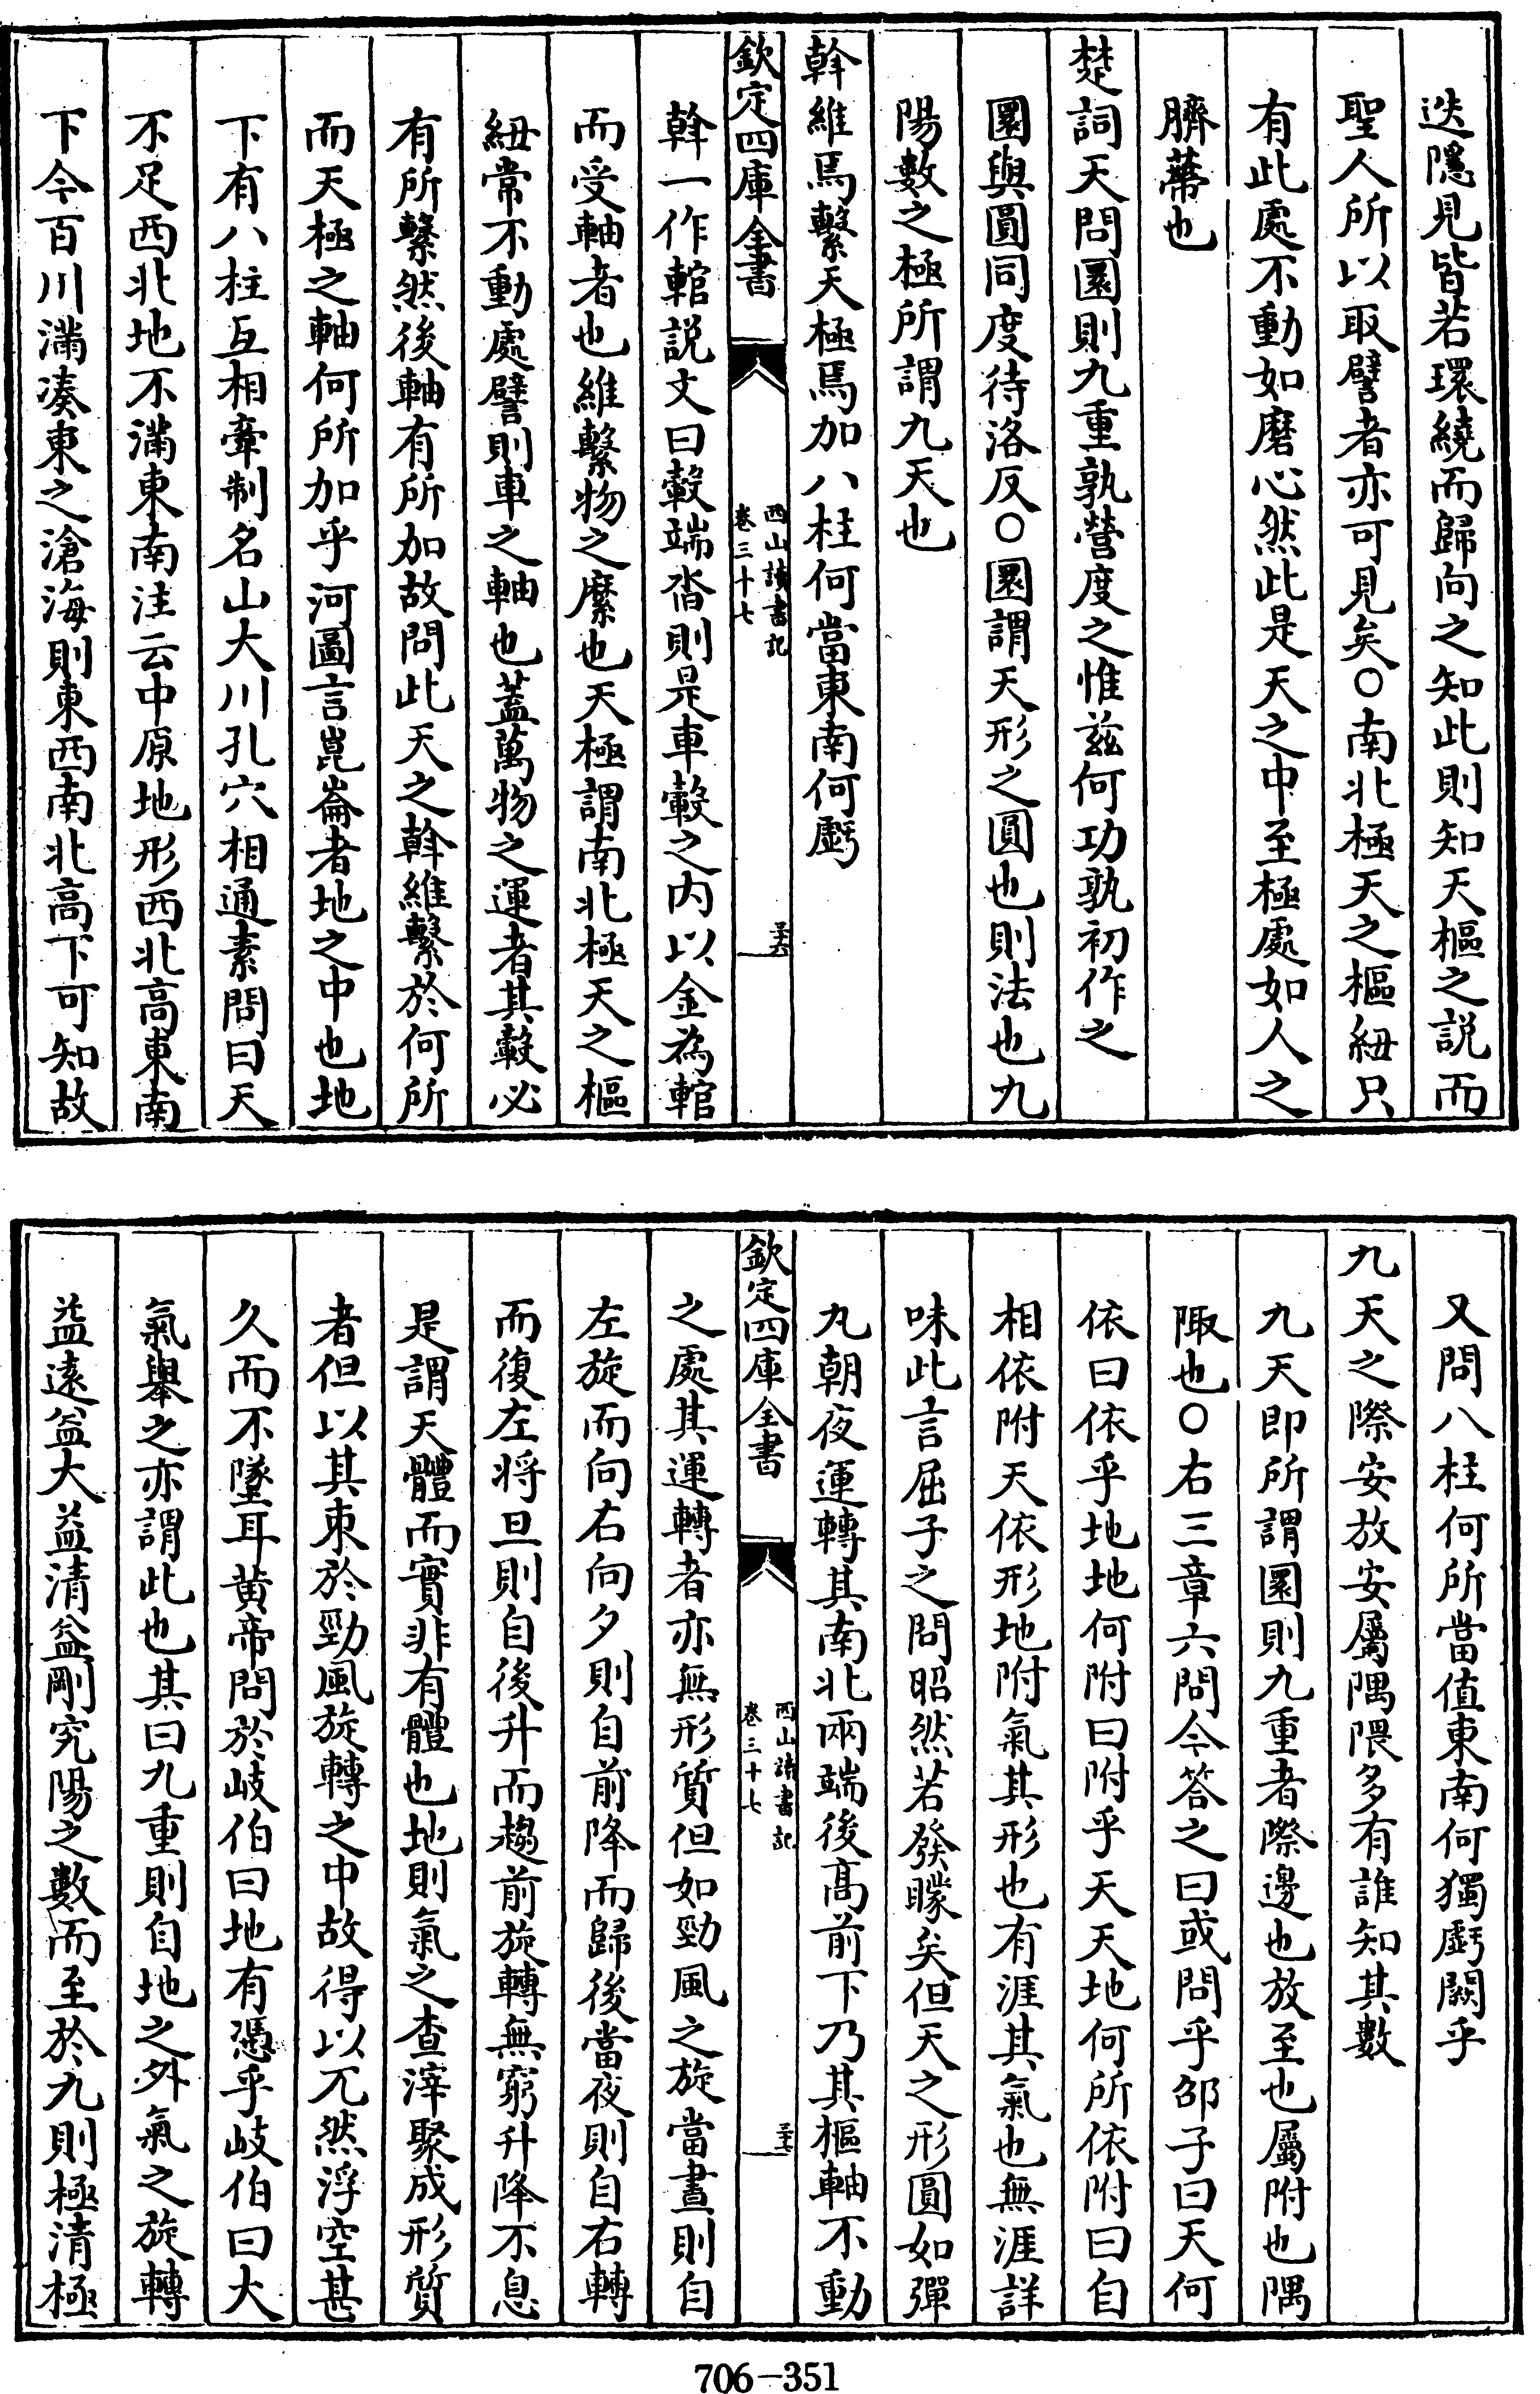 迭隱見皆若環繞而歸向之知此則知天樞之説而
聖人所以取譬者亦可見矣○南北極天之樞紐只
有此處不動如磨心然此是天之中至極處如人之
臍蔕也
楚詞天問圜則九重孰營度之惟兹何功孰初作之
圜與圓同度待洛反○圜謂天形之圓也則法也九
陽數之極所謂九天也
斡維焉繫天極焉加八柱何當東南何虧
欽定四庫全書
西山讀書記
卷三十七
三十六
斡一作輨説文曰轂端沓則是車轂之内以金為輨
而受軸者也維繫物之縻也天極謂南北極天之樞
紐常不動處譬則車之軸也蓋萬物之運者其轂必
有所繫然後軸有所加故問此天之斡維繫於何所
而天極之軸何所加乎河圖言崑崙者地之中也地
下有八柱互相牽制名山大川孔穴相通素問曰天
不足西北地不滿東南注云中原地形西北高東南
下今百川滿湊東之滄海則東西南北高下可知故
又問八柱何所當值東南何獨虧闕乎
九天之際安放安屬隅隈多有誰知其數
九天即所謂圜則九重者際邊也放至也屬附也隅
陬也○右三章六問今答之曰或問乎邵子曰天何
依曰依乎地地何附曰附乎天天地何所依附曰自
相依附天依形地附氣其形也有涯其氣也無涯詳
味此言屈子之問昭然若發矇矣但天之形圓如彈
丸朝夜運轉其南北兩端後高前下乃其樞軸不動
欽定四庫全書
西山讀書記
卷三十七
三十七
之處其運轉者亦無形質但如勁風之旋當晝則自
左旋而向右向夕則自前降而歸後當夜則自右轉
而復左将旦則自後升而趨前旋轉無窮升降不息
是謂天體而實非有體也地則氣之查滓聚成形質
者但以其束於勁風旋轉之中故得以兀然浮空甚
久而不墜耳黄帝問於岐伯曰地有憑乎岐伯曰大
氣舉之亦謂此也其曰九重則自地之外氣之旋轉
益逺益大益清益剛究陽之數而至於九則極清極
706-351